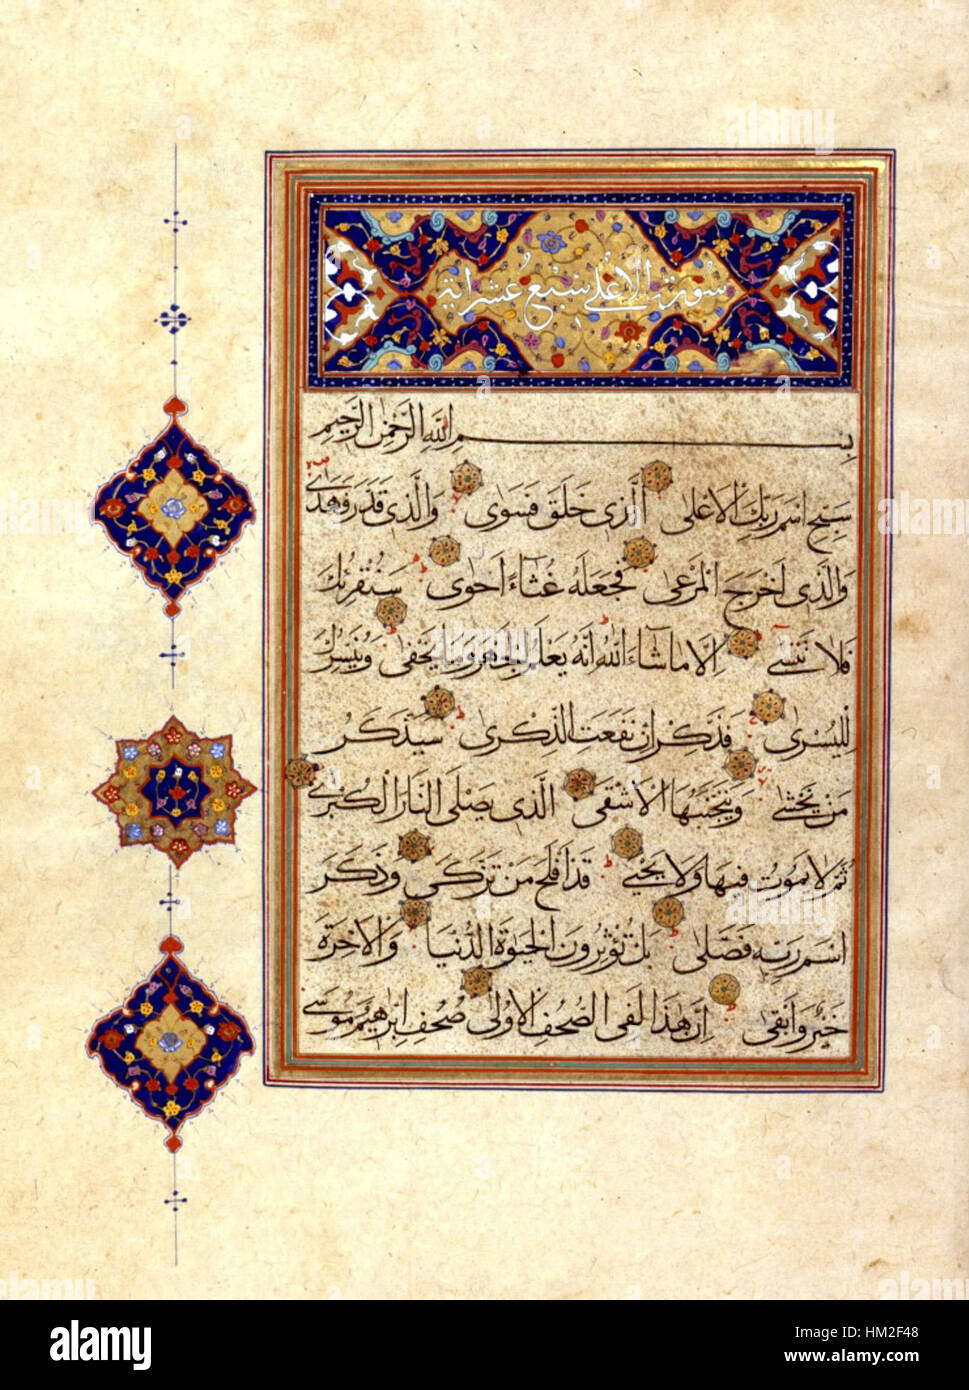 سورة الاعلى سبع عشر اية
بِسْمِ اللّٰهِ الرَّحْمٰنِ الرَّحِيمِ
سَبِّحِ اسْمَ رَبِّكَ الْاَعْلٰى الَّذِى خَلَقَ فَسَوّٰى وَالَّذِى قَدَّرَ فَهَدٰى
وَالَّذِى اَخْرَجَ الْمَرْعٰى فَجَعَلَهُ غُثَاءً اَحْوٰى سَنُقْرِئُكَ
فَلَا تَنْسٰى اِلَّا مَا شَاءَ اللّٰهُ اِنَّهُ يَعْلَمُ الْجَهْرَ وَمَا يَخْفٰى وَنُيَسِّرُكَ
لِلْيُسْرٰى فَذَكِّرْ اِنْ نَفَعَتِ الذِّكْرٰى سَيَذَّكَّرُ
مَنْ يَخْشٰى وَيَتَجَنَّبُهَا الْاَشْقَى الَّذِى يَصْلَى النَّارَ الْكُبْرٰى
ثُمَّ لَا يَمُوتُ فِيهَا وَلَا يَحْيٰى قَدْ اَفْلَحَ مَنْ تَزَكّٰى وَذَكَرَ
اسْمَ رَبِّهِ فَصَلّٰى بَلْ تُؤْثِرُونَ الْحَيٰوةَ الدُّنْيَا وَالْاٰخِرَةُ
خَيْرٌ وَاَبْقٰى اِنَّ هٰذَا لَفِى الصُّحُفِ الْاُولٰى صُحُفِ اِبْرٰهِيمَ وَمُوسٰى
alamy
Image ID: HM2F48
www.alamy.com